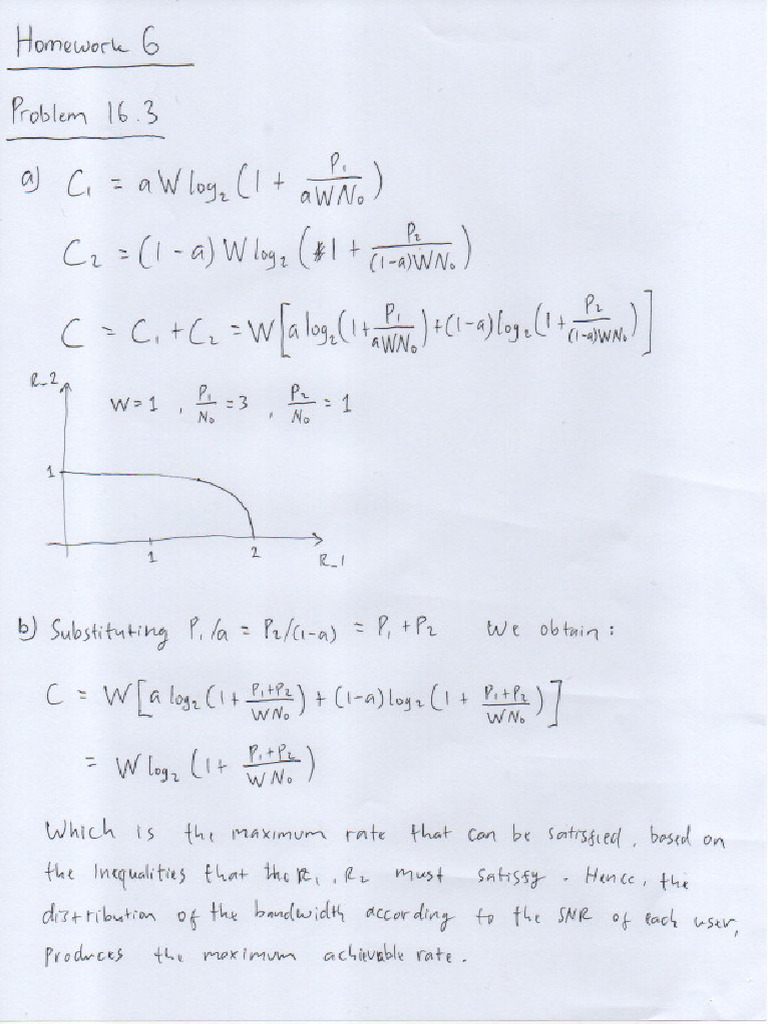 Homework 6
Problem 16.3
a) C₁ = a W log₂ (1 + P₁/(aWN₀))
C₂ = (1-a) W log₂ (1 + P₂/((1-a)WN₀))
C = C₁ + C₂ = W[a log₂(1 + P₁/(aWN₀)) + (1-a) log₂(1 + P₂/((1-a)WN₀))]
R_2
W=1 , P₁/N₀ = 3 , P₂/N₀ = 1
1
1 2
R_1
b) Substituting P₁/a = P₂/(1-a) = P₁ + P₂ We obtain :
C = W[a log₂(1 + (P₁+P₂)/(WN₀)) + (1-a) log₂(1 + (P₁+P₂)/(WN₀))]
= W log₂ (1 + (P₁+P₂)/(WN₀))
Which is the maximum rate that can be satisfied, based on
the inequalities that the R₁, R₂ must satisfy. Hence, the
distribution of the bandwidth according to the SNR of each user,
produces the maximum achievable rate.